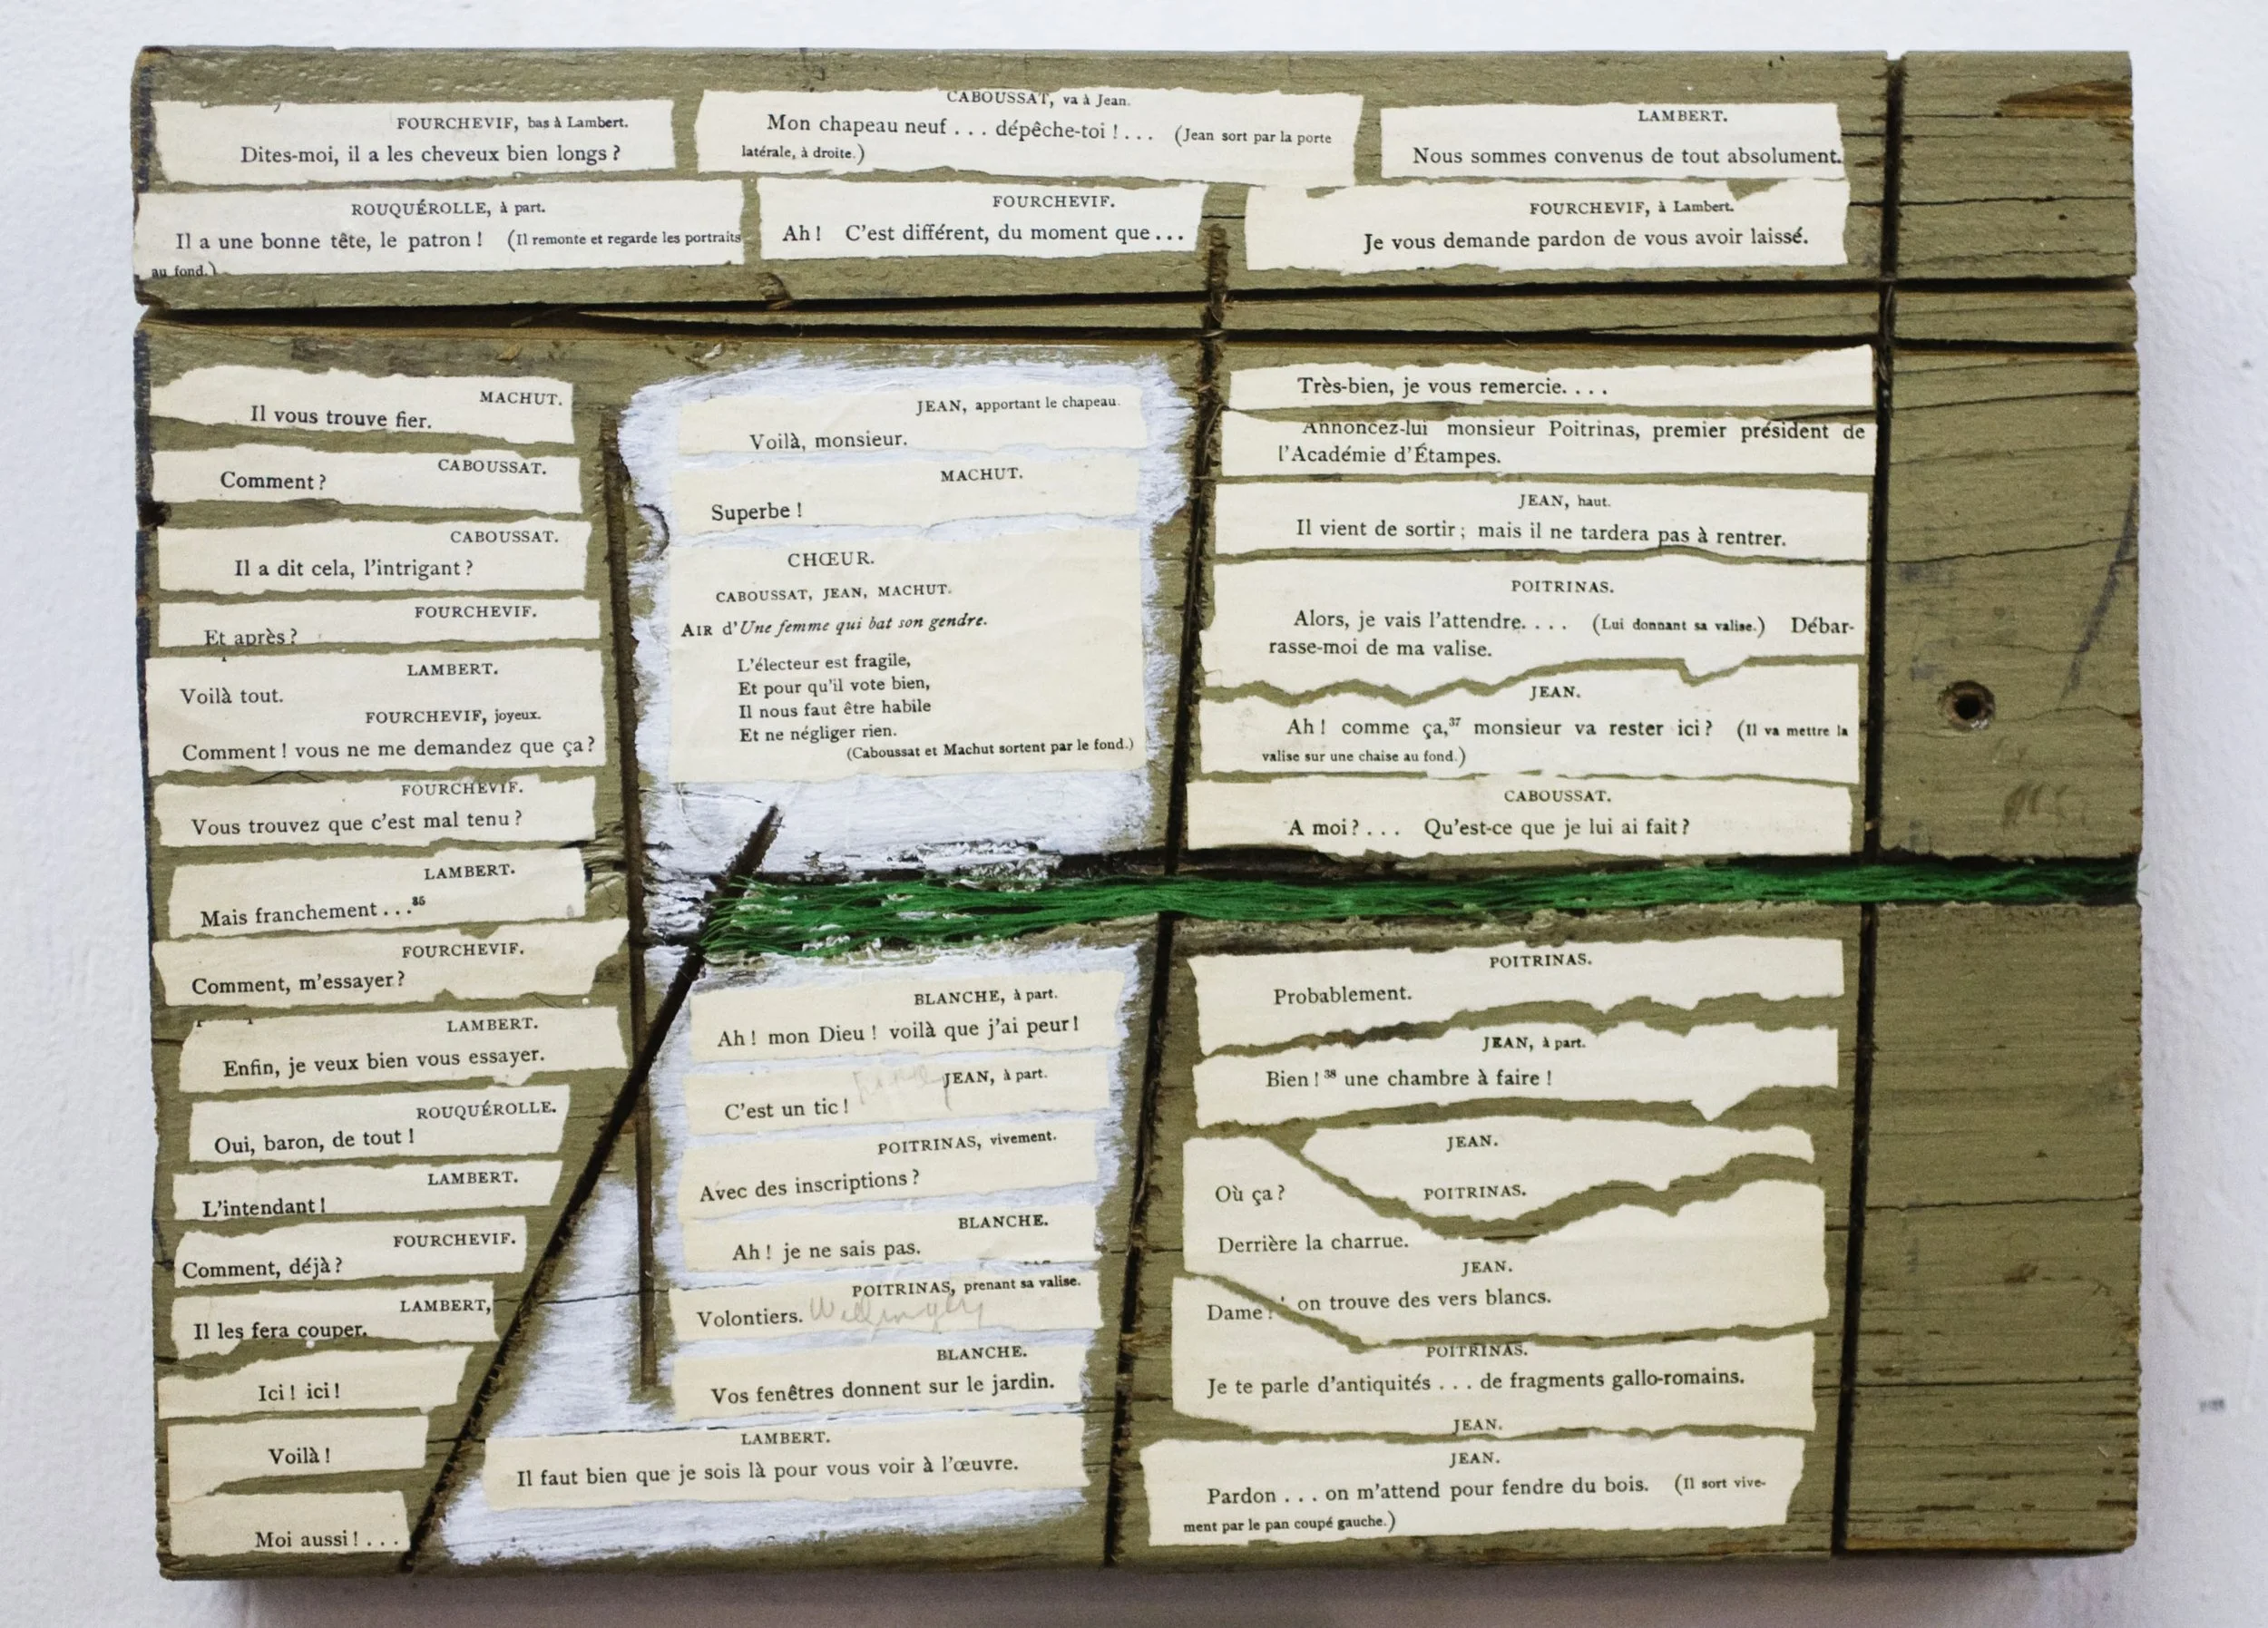 FOURCHEVIF, bas à Lambert.
Dites-moi, il a les cheveux bien longs ?
CABOUSSAT, va à Jean.
Mon chapeau neuf . . . dépêche-toi ! . . . (Jean sort par la porte
latérale, à droite.)
LAMBERT.
Nous sommes convenus de tout absolument.
ROUQUÉROLLE, à part.
Il a une bonne tête, le patron ! (Il remonte et regarde les portraits
au fond.)
FOURCHEVIF.
Ah ! C'est différent, du moment que . . .
FOURCHEVIF, à Lambert.
Je vous demande pardon de vous avoir laissé.
MACHUT.
Il vous trouve fier.
CABOUSSAT.
Comment ?
CABOUSSAT.
Il a dit cela, l'intrigant ?
FOURCHEVIF.
Et après ?
LAMBERT.
Voilà tout.
FOURCHEVIF, joyeux.
Comment ! vous ne me demandez que ça ?
FOURCHEVIF.
Vous trouvez que c'est mal tenu ?
LAMBERT.
Mais franchement . . .
FOURCHEVIF.
Comment, m'essayer ?
LAMBERT.
Enfin, je veux bien vous essayer.
ROUQUÉROLLE.
Oui, baron, de tout !
LAMBERT.
L'intendant !
FOURCHEVIF.
Comment, déjà ?
LAMBERT,
Il les fera couper.
Ici ! ici !
Voilà !
Moi aussi ! . . .
JEAN, apportant le chapeau.
Voilà, monsieur.
MACHUT.
Superbe !
CHŒUR.
CABOUSSAT, JEAN, MACHUT.
AIR d'Une femme qui bat son gendre.
L'électeur est fragile,
Et pour qu'il vote bien,
Il nous faut être habile
Et ne négliger rien.
(Caboussat et Machut sortent par le fond.)
BLANCHE, à part.
Ah ! mon Dieu ! voilà que j'ai peur !
JEAN, à part.
C'est un tic !
POITRINAS, vivement.
Avec des inscriptions ?
BLANCHE.
Ah ! je ne sais pas.
POITRINAS, prenant sa valise.
Volontiers.
BLANCHE.
Vos fenêtres donnent sur le jardin.
LAMBERT.
Il faut bien que je sois là pour vous voir à l'œuvre.
Très-bien, je vous remercie. . . .
Annoncez-lui monsieur Poitrinas, premier président de
l'Académie d'Étampes.
JEAN, haut.
Il vient de sortir ; mais il ne tardera pas à rentrer.
POITRINAS.
Alors, je vais l'attendre. . . . (Lui donnant sa valise.) Débar-
rasse-moi de ma valise.
JEAN.
Ah ! comme ça,³⁷ monsieur va rester ici ? (Il va mettre la
valise sur une chaise au fond.)
CABOUSSAT.
A moi ? . . . Qu'est-ce que je lui ai fait ?
POITRINAS.
Probablement.
JEAN, à part.
Bien !³⁸ une chambre à faire !
JEAN.
Où ça ?
POITRINAS.
Derrière la charrue.
JEAN.
Dame ! on trouve des vers blancs.
POITRINAS.
Je te parle d'antiquités . . . de fragments gallo-romains.
JEAN.
JEAN.
Pardon . . . on m'attend pour fendre du bois. (Il sort vive-
ment par le pan coupé gauche.)